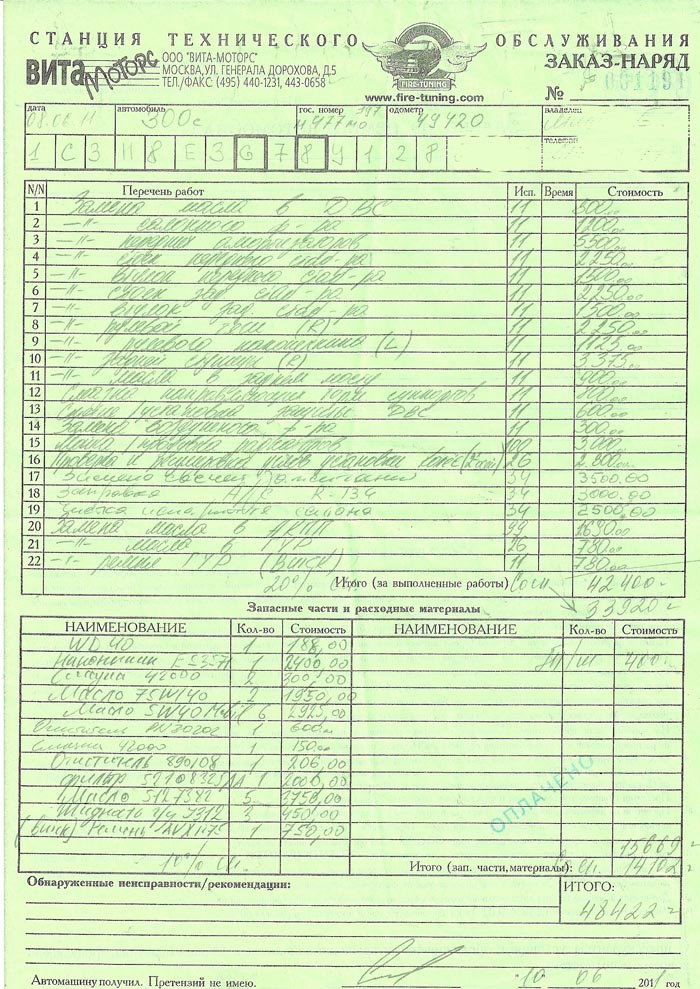 СТАНЦИЯ ТЕХНИЧЕСКОГО ОБСЛУЖИВАНИЯ
ВИТА МОТОРС
ООО "ВИТА-МОТОРС"
МОСКВА, УЛ. ГЕНЕРАЛА ДОРОХОВА, Д.5
ТЕЛ./ФАКС: (495) 440-1231, 443-0658
FIRE-TUNING
www.fire-tuning.com
ЗАКАЗ-НАРЯД
№
дата автомобиль гос. номер одометр владелец
08.06.11 300с м977мо 197 49420
телефон
1 C 3 H 8 E 3 G 7 8 Y 1 2 8
N/N Перечень работ Исп. Время Стоимость
1 Замена масла в ДВС 11 500.00
2 -"- салонного ф-ра 11 1200.00
3 -"- передних амортизаторов 11 5500.00
4 -"- стоек переднего стаб-ра 11 2250.00
5 -"- втулок переднего стаб-ра 11 1500.00
6 -"- стоек зад. стаб-ра 11 2250.00
7 -"- втулок зад. стаб-ра 11 1500.00
8 -"- рулевой тяги (R) 11 2250.00
9 -"- рулевого наконечника (L) 11 1125.00
10 -"- задней ступицы (R) 11 3375.00
11 -"- масла в заднем мосту 11 900.00
12 Смазка направляющих торм. суппортов 11 800.00
13 Снятие/установка защиты ДВС 11 600.00
14 Замена воздушного ф-ра 11 300.00
15 Мойка радиаторов 100 3000
16 Проверка и регулировка углов установки колес (2 оси) 26 2800.00
17 Замена свечей зажигания 34 3500.00
18 Заправка A/C R-134 34 3000.00
19 Чистка салона 34 2500.00
20 Замена масла в АКПП 99 1690.00
21 -"- масла в ГУР 26 780.00
22 -"- ремня ГУР 11 780.00
20% Итого (за выполненные работы) 42400=
33920=
Запасные части и расходные материалы
НАИМЕНОВАНИЕ Кол-во Стоимость НАИМЕНОВАНИЕ Кол-во Стоимость
WD 40 1 188,00
Наконечник ES3571 1 2400,00 400=
Смазка 42000 2 300,00
Масло 75W140 2 1950,00
Масло 5W40 6 2925,00
Очиститель 1 600.00
Смазка 42000 1 150.00
Очиститель 890108 1 206,00
Фильтр 1 2000,00
Масло 5127382 5 3750,00
3 450,00
Ремень 1 750,00
ОПЛАЧЕНО
15669=
10% Итого (зап. части, материалы): 14102=
Обнаруженные неисправности/рекомендации:
ИТОГО:
48422=
Автомашину получил. Претензий не имею. 10 06 2011 год